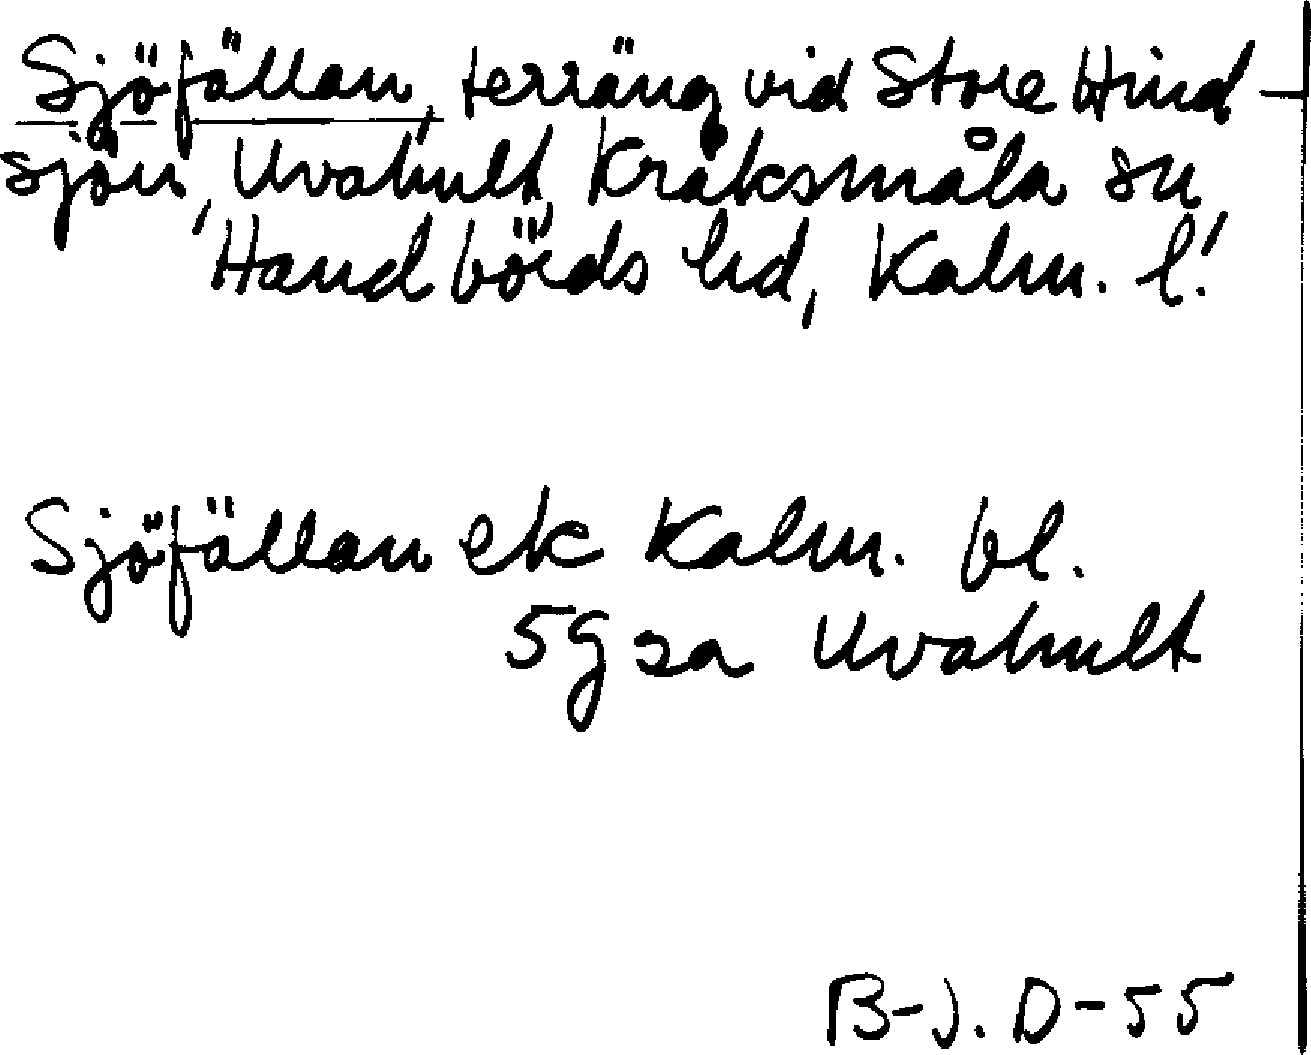 Sjöfällan, terräng vid Store Hind-
sjön, Uvahult, Kråksmåla sn,
Handbörds hd, Kalm. l.
Sjöfällan ek Kalm. bl.
5g sa Uvahult
B-J. D-55